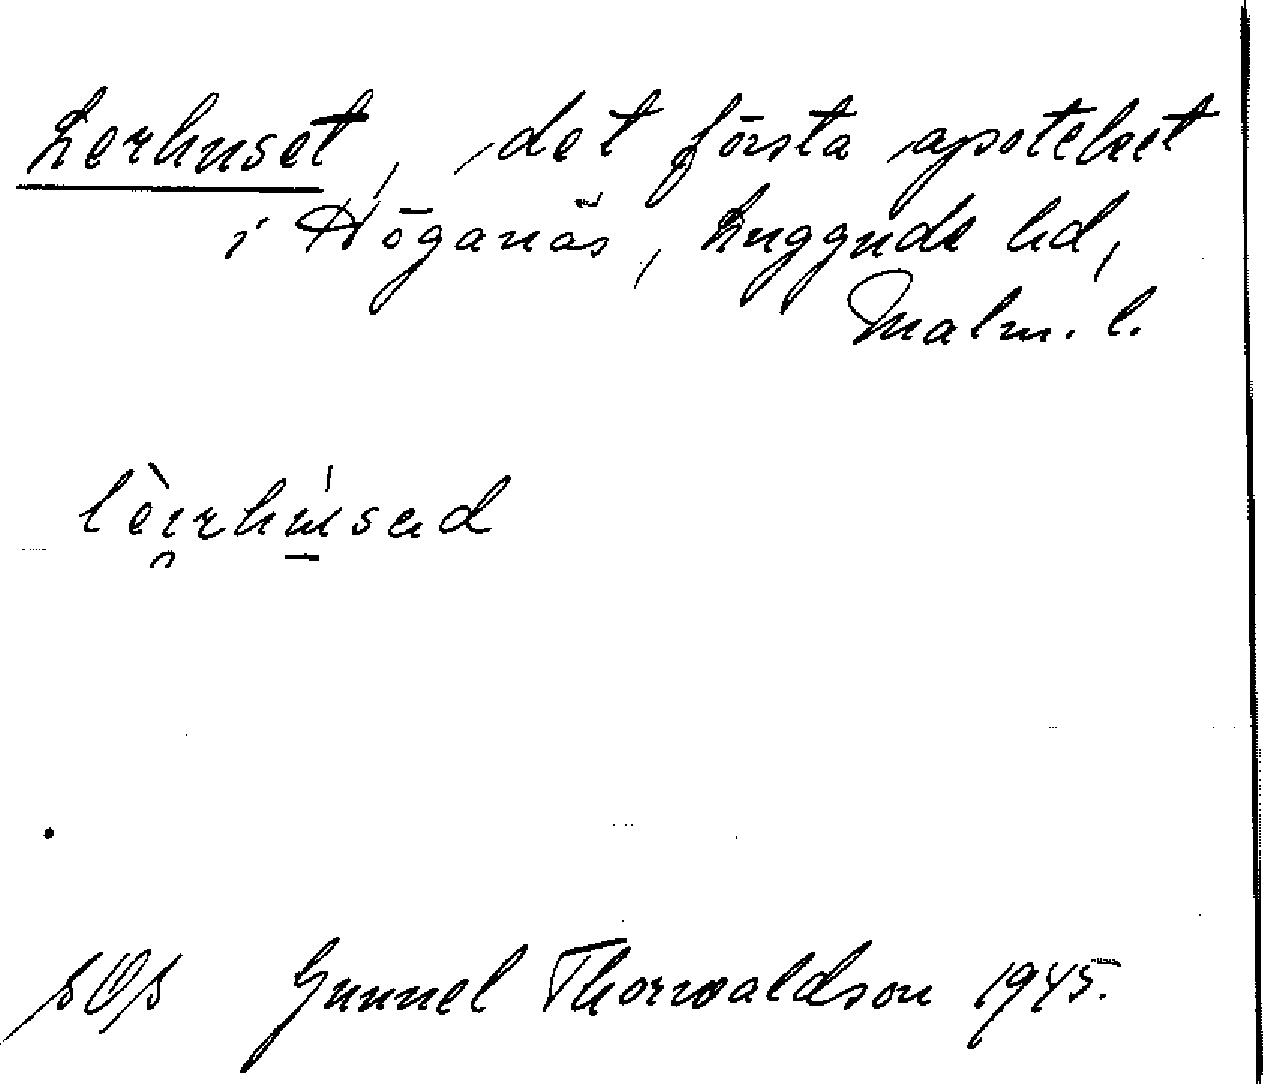 Lerhuset, det första apoteket
i Höganäs, Luggude hd,
Malm. l.
SOS Gunnel Thorwaldson 1945.